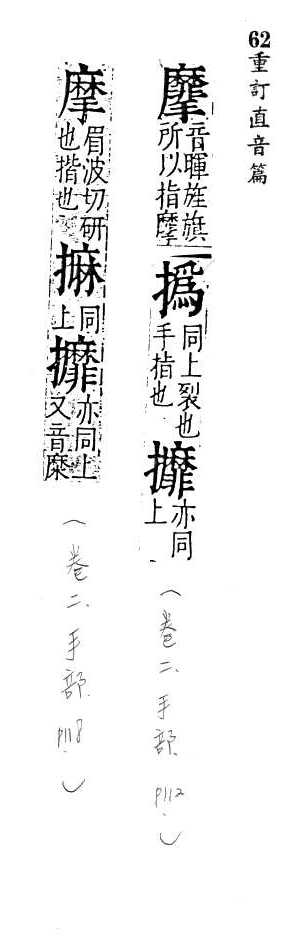 62重訂直音篇
麾音暉旌旗所以指麾撝同上裂也手指也攠亦同上（卷二、手部P112.）
摩眉波切研也揩也同上攠亦同上又音糜（卷二、手部P118.）